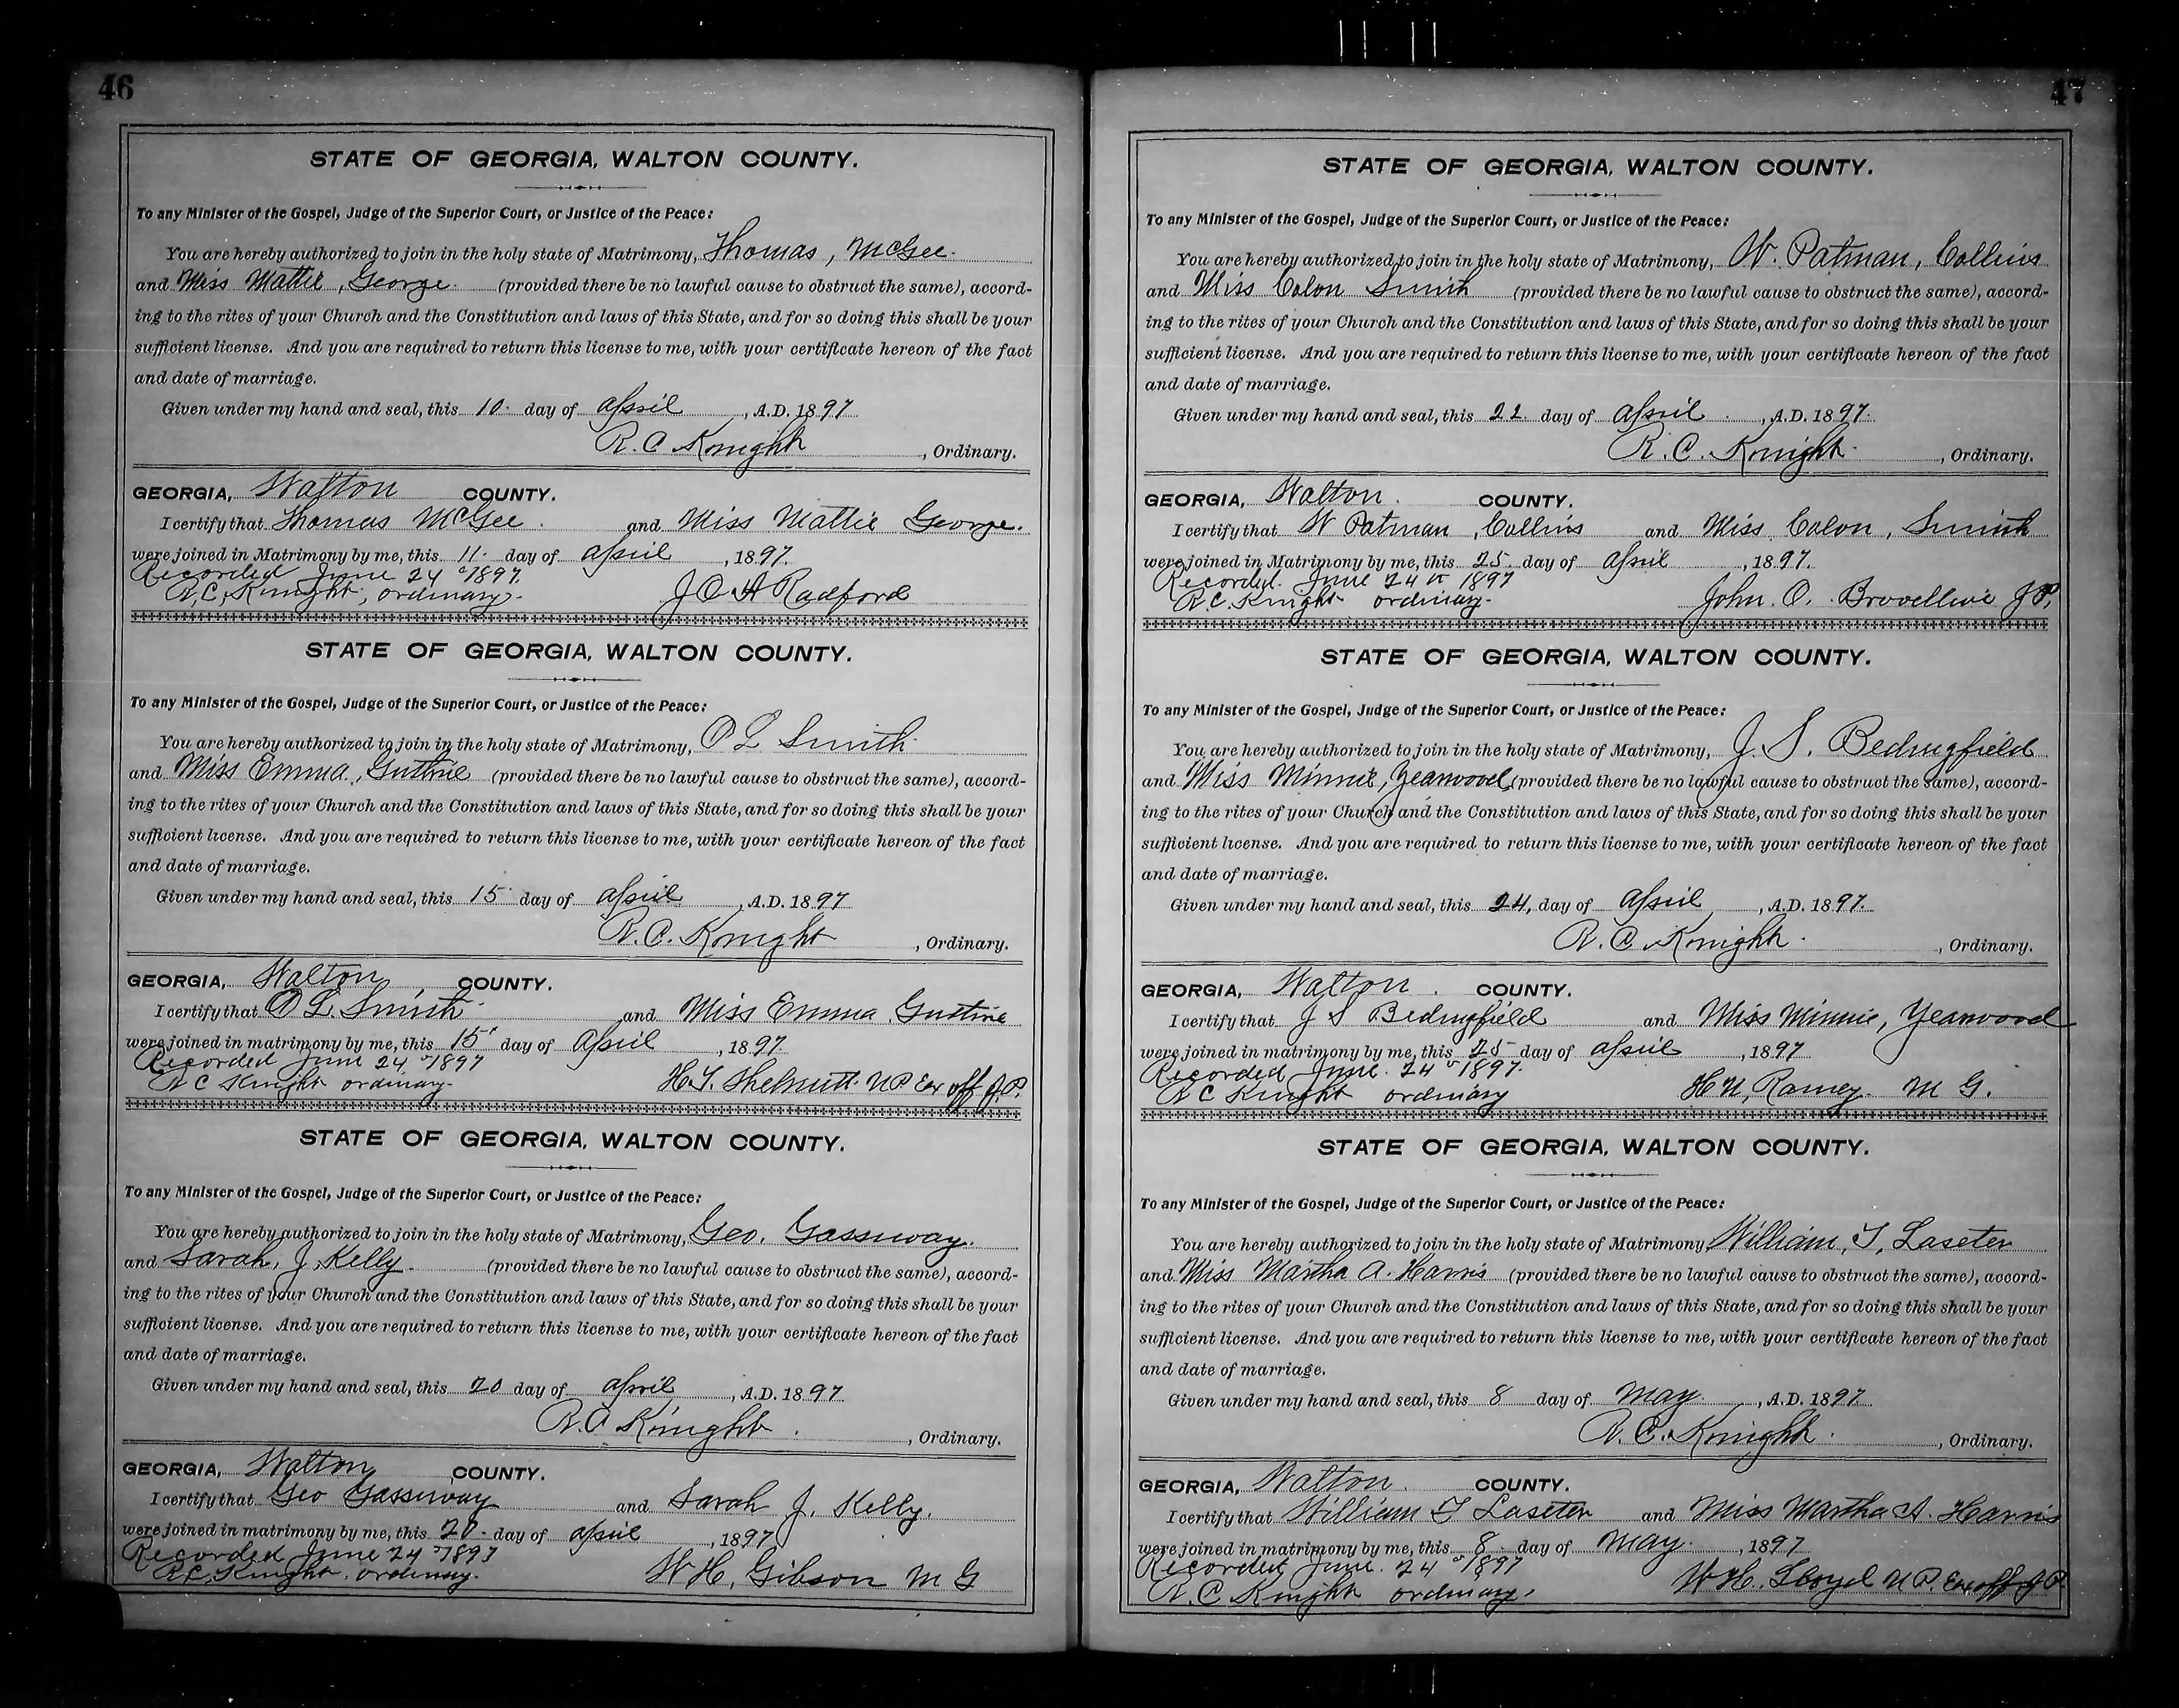 46
STATE OF GEORGIA, WALTON COUNTY.
To any Minister of the Gospel, Judge of the Superior Court, or Justice of the Peace:
You are hereby authorized to join in the holy state of Matrimony, Thomas, McGee.
and Miss Mattie, George. (provided there be no lawful cause to obstruct the same), accord-
ing to the rites of your Church and the Constitution and laws of this State, and for so doing this shall be your
sufficient license. And you are required to return this license to me, with your certificate hereon of the fact
and date of marriage.
Given under my hand and seal, this 10. day of April, A.D. 1897.
R. C Knight, Ordinary.
GEORGIA, Walton COUNTY.
I certify that Thomas McGee. and Miss Mattie George.
were joined in Matrimony by me, this 11. day of April, 1897.
Recorded June 24 1897.
R. C, Knight, ordinary.
J O A Radford
STATE OF GEORGIA, WALTON COUNTY.
To any Minister of the Gospel, Judge of the Superior Court, or Justice of the Peace:
You are hereby authorized to join in the holy state of Matrimony, O L Smith
and Miss Emma, Guthrie (provided there be no lawful cause to obstruct the same), accord-
ing to the rites of your Church and the Constitution and laws of this State, and for so doing this shall be your
sufficient license. And you are required to return this license to me, with your certificate hereon of the fact
and date of marriage.
Given under my hand and seal, this 15 day of April, A.D. 1897
R. C. Knight, Ordinary.
GEORGIA, Walton, COUNTY.
I certify that O L. Smith. and Miss Emma Guthrie
were joined in matrimony by me, this 15 day of April, 1897.
Recorded June 24 1897
R C Knight ordinary.
H. T. Shelnutt. N P Ex off J. P.
STATE OF GEORGIA, WALTON COUNTY.
To any Minister of the Gospel, Judge of the Superior Court, or Justice of the Peace:
You are hereby authorized to join in the holy state of Matrimony, Geo. Gassaway.
and Sarah, J, Kelly. (provided there be no lawful cause to obstruct the same), accord-
ing to the rites of your Church and the Constitution and laws of this State, and for so doing this shall be your
sufficient license. And you are required to return this license to me, with your certificate hereon of the fact
and date of marriage.
Given under my hand and seal, this 20 day of April, A.D. 1897
R. C Knight., Ordinary.
GEORGIA, Walton, COUNTY.
I certify that Geo Gassaway and Sarah J. Kelly.
were joined in matrimony by me, this 20. day of April, 1897
Recorded June 24 1897
R. C, Knight, ordinary.
W H, Gibson M G
47
STATE OF GEORGIA, WALTON COUNTY.
To any Minister of the Gospel, Judge of the Superior Court, or Justice of the Peace:
You are hereby authorized to join in the holy state of Matrimony, W. Patman, Collins
and Miss Colon Smith (provided there be no lawful cause to obstruct the same), accord-
ing to the rites of your Church and the Constitution and laws of this State, and for so doing this shall be your
sufficient license. And you are required to return this license to me, with your certificate hereon of the fact
and date of marriage.
Given under my hand and seal, this 22. day of April., A.D. 1897.
R. C. Knight., Ordinary.
GEORGIA, Walton. COUNTY.
I certify that W Patman, Collins and Miss. Colon, Smith
were joined in Matrimony by me, this 25. day of April, 1897.
Recorded. June 24th 1897
R. C. Knight ordinary.
John. O. J P,
STATE OF GEORGIA, WALTON COUNTY.
To any Minister of the Gospel, Judge of the Superior Court, or Justice of the Peace:
You are hereby authorized to join in the holy state of Matrimony, J. S. Bedingfield
and Miss Minnie, Yearwood, (provided there be no lawful cause to obstruct the same), accord-
ing to the rites of your Church and the Constitution and laws of this State, and for so doing this shall be your
sufficient license. And you are required to return this license to me, with your certificate hereon of the fact
and date of marriage.
Given under my hand and seal, this 24, day of April, A.D. 1897.
R. C Knight., Ordinary.
GEORGIA, Walton. COUNTY.
I certify that J S Bedingfield and Miss Minnie, Yearwood
were joined in matrimony by me, this 25 day of April, 1897
Recorded June. 24 1897.
R C Knight ordinary
H N, Ramey. M G.
STATE OF GEORGIA, WALTON COUNTY.
To any Minister of the Gospel, Judge of the Superior Court, or Justice of the Peace:
You are hereby authorized to join in the holy state of Matrimony William, T, Laseter
and Miss Martha A. Harris (provided there be no lawful cause to obstruct the same), accord-
ing to the rites of your Church and the Constitution and laws of this State, and for so doing this shall be your
sufficient license. And you are required to return this license to me, with your certificate hereon of the fact
and date of marriage.
Given under my hand and seal, this 8 day of May., A.D. 1897.
R. C. Knight., Ordinary.
GEORGIA, Walton. COUNTY.
I certify that William T Laseter and Miss Martha A. Harris
were joined in matrimony by me, this 8. day of May., 1897
Recorded June. 24 1897
R. C Knight ordinary,
W H. Lloyd N P. Ex off J P